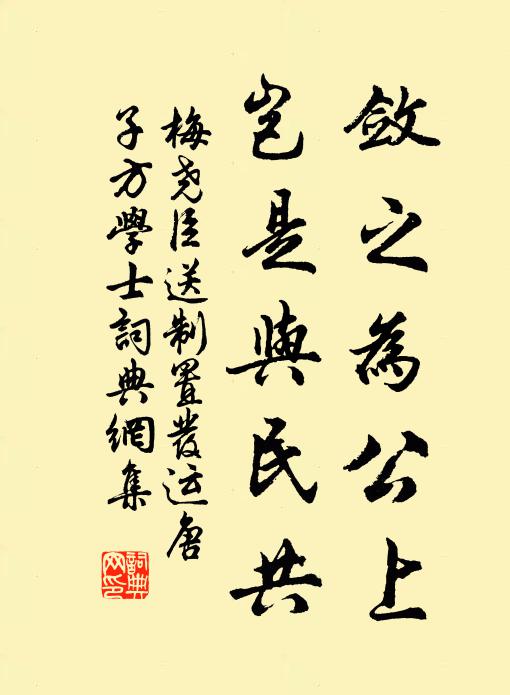 斂之為公上
豈是與民共
梅堯臣送制置發运唐
子方學士詞典網集
詞典
网印